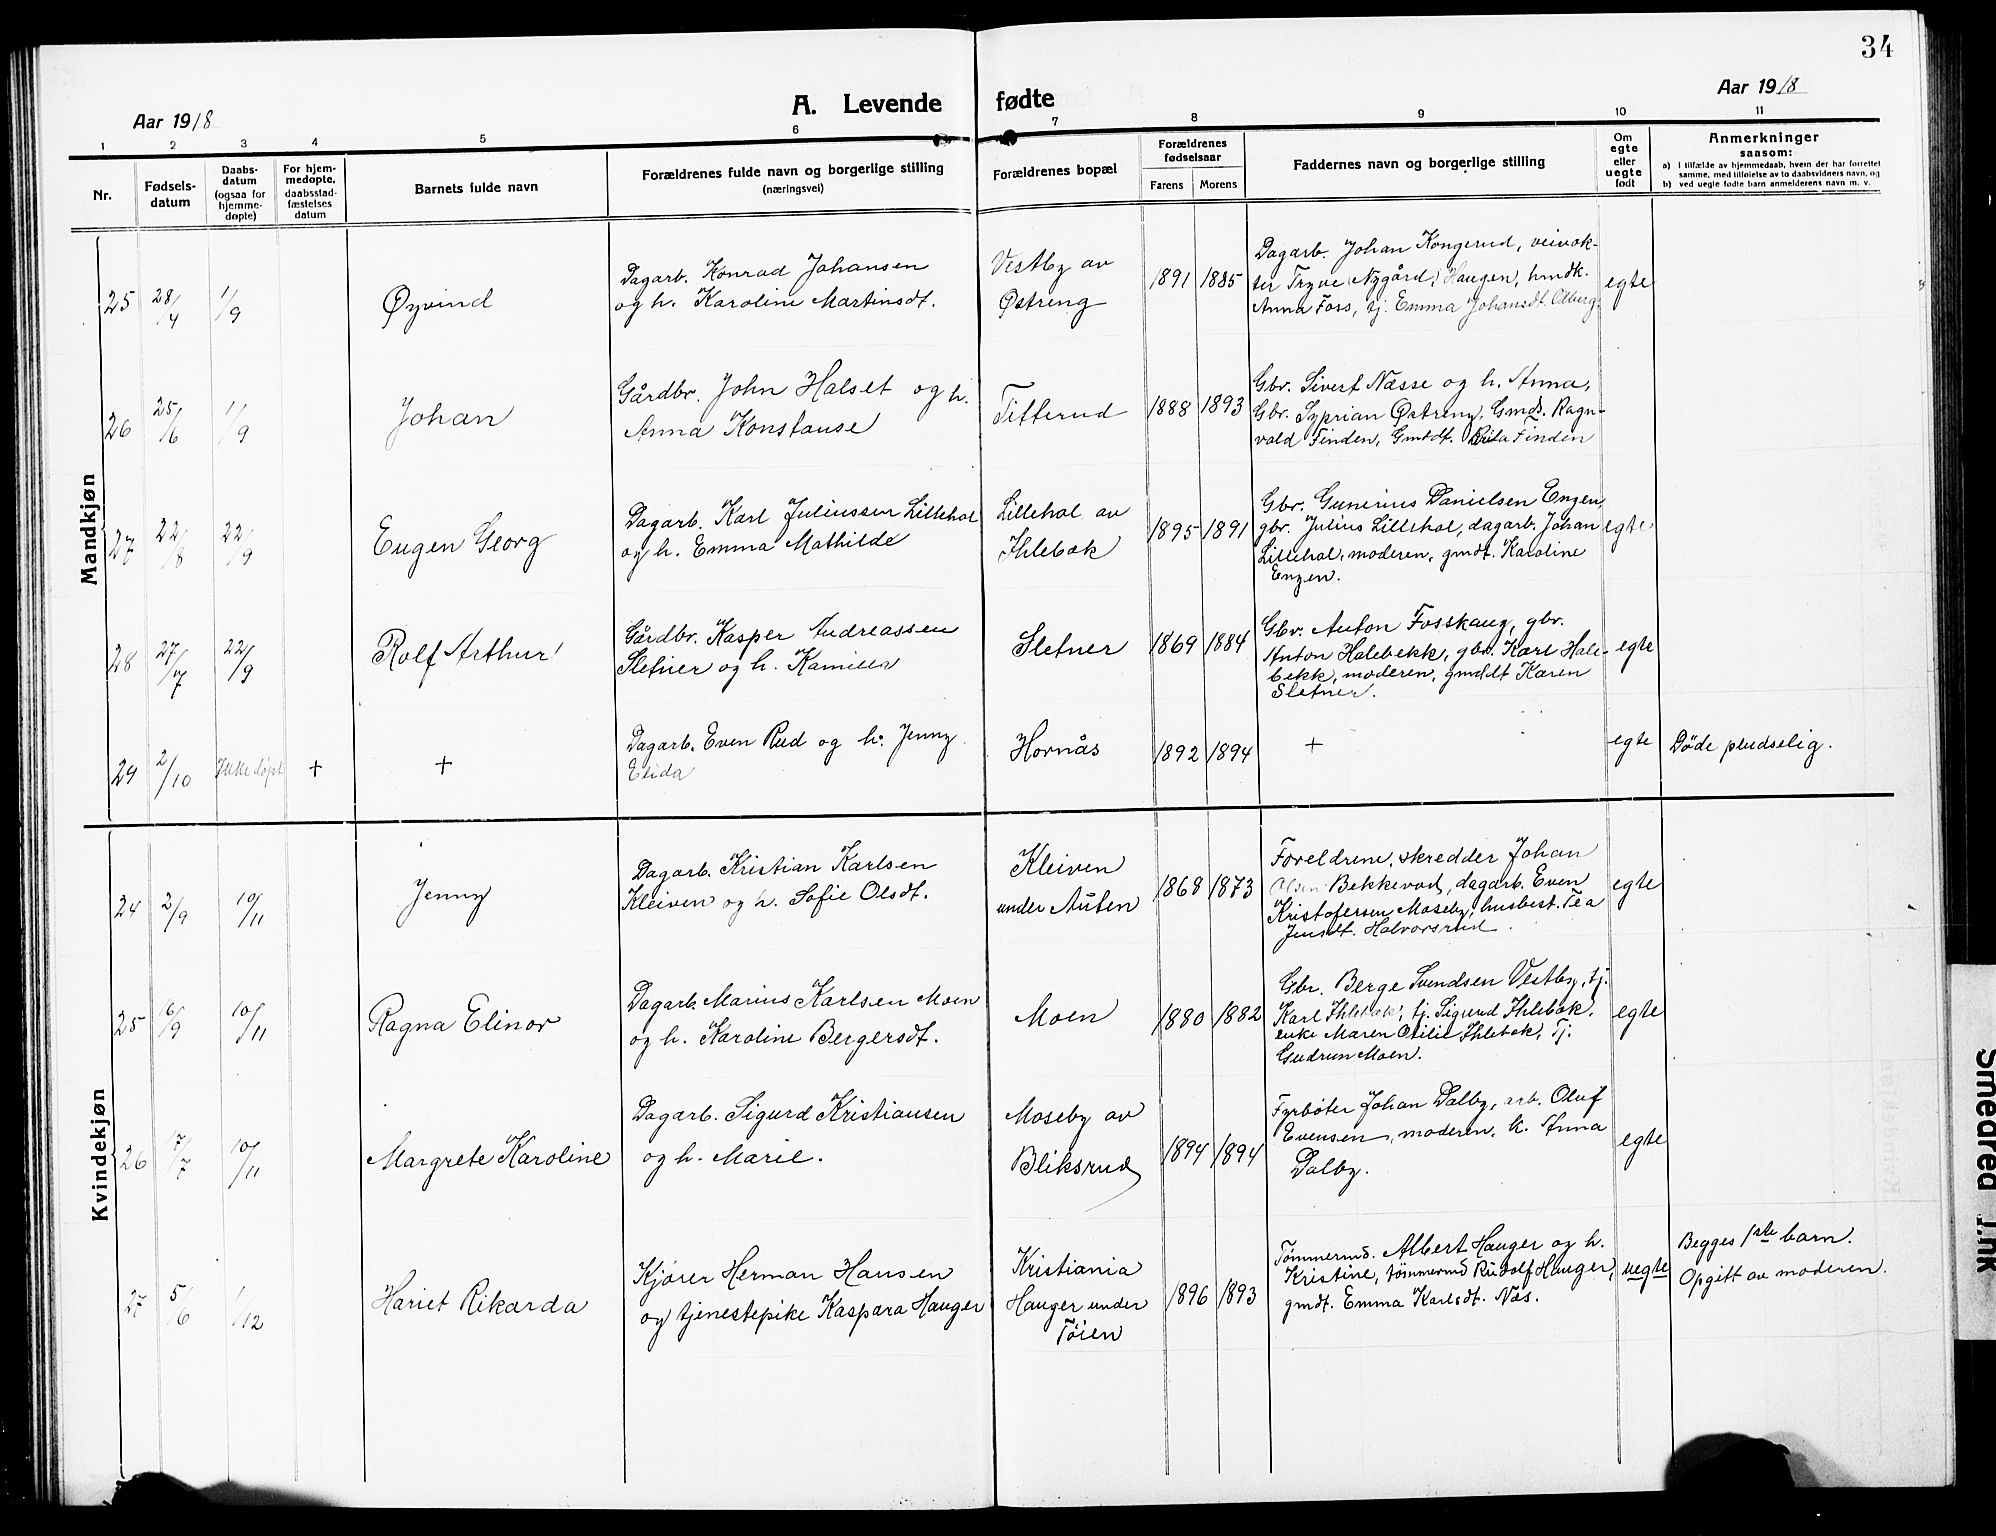 34
Aar 1918
A. Levende fødte
Aar 1918
1 2 3 4 5 6 7 8 9 10 11
Nr.
Fødsels-
datum
Daabs-
datum
(ogsaa for
hjemme-
døpte)
For hjem-
medøpte,
daabsstad-
fæstelses
datum
Barnets fulde navn
Forældrenes fulde navn og borgerlige stilling
(næringsvei)
Forældrenes bopæl
Forældrenes
fødselsaar
Farens Morens
Faddernes navn og borgerlige stilling
Om
egte
eller
uegte
født
Anmerkninger
saasom:
a) I tilfælde av hjemmedaab, hvem der har forrettet
samme, med tilføielse av to daabsvidners navn, og
b) ved uegte fødte barn anmelderens navn m. v.
Mandkjøn
25 28/4 1/9 Øyvind
Dagarb. Konrad Johansen
og h. Karoline Martinsdt.
Vestby av
Østreng
1891 1885
Dagarb. Johan Kongerud, veivok-
ter Tryve Nygård, Haugen, hmdk.
Anna Foss, tj. Emma Johansdt. Olberg.
egte
26 25/6 1/9 Johan
Gårdbr. John Halset og h.
Anna Konstanse
Titterud
1888 1893
Gbr. Sivert Næsse og h. Anna,
Gbr. Syprian Østreng, Gmds. Ragn-
vald Finden, Gmdt. Finden
27 22/8 22/9 Eugen Georg
Dagarb. Karl Juliussen Lillehol
og h. Emma Mathilde
Lillehol av
Ihlebæk
1895 1891
Gbr. Gunerius Danielsen Engen,
gbr. Julius Lillehol, dagarb. Johan
Lillehol, moderen, gmdt. Karoline
Engen.
egte
28 27/7 22/9 Rolf Arthur
Gårdbr. Kasper Andreassen
Sletner og h. Kamilla
Sletner
1869 1884
Gbr. Anton Fosshaug, gbr.
Anton Halebekk, gbr. Karl Hale-
bekk, moderen, gmddt Karen
Sletner.
egte
29 2/10 Ikke døpt + +
Dagarb. Even Rud og h. Jenny
Elida
Hornås
1892 1894
+
egte
Døde pludselig.
Kvindekjøn
24 2/9 10/11 Jenny
Dagarb. Kristian Karlsen
Kleiven og h. Sofie Olsdt.
Kleiven
under Auten
1868 1873
Foreldrene, skredder Johan
Olsen Bekkevad, dagarb. Even
Kristofersen Moseby, husbest. Tea
Jensdt. Halvorsrud.
egte
25 6/9 10/11 Ragna Elinor
Dagarb. Marius Karlsen Moen
og h. Karoline Bergersdt.
Moen
1880 1882
Gbr. Berge Svendsen Vestby, tj.
Karl Ihlebæk, tj. Sigurd Ihlebæk,
enke Maren Otilie Ihlebæk, Tj.
Gudrun Moen.
egte
26 7/7 10/11 Margrete Karoline
Dagarb. Sigurd Kristiansen
og h. Marie.
Moseby av
Bliksrud
1894 1894
Fyrbøter Johan Dalby, arb. Oluf
Evensen, moderen, k. Anna
Dalby.
egte
27 5/6 1/12 Hariet Rikarda
Kjører Herman Hansen
og tjenestepike Kaspara Hauger
Kristiania
Hauger under
Tøien
1896 1893
Tømmermd. Albert Hauger og h.
Kristine, tømmermd Rudolf Hauger,
gmdt. Emma Karlsdt. Næs.
uegte
Begges 1ste barn.
Opgitt av moderen.
Smeared Ink